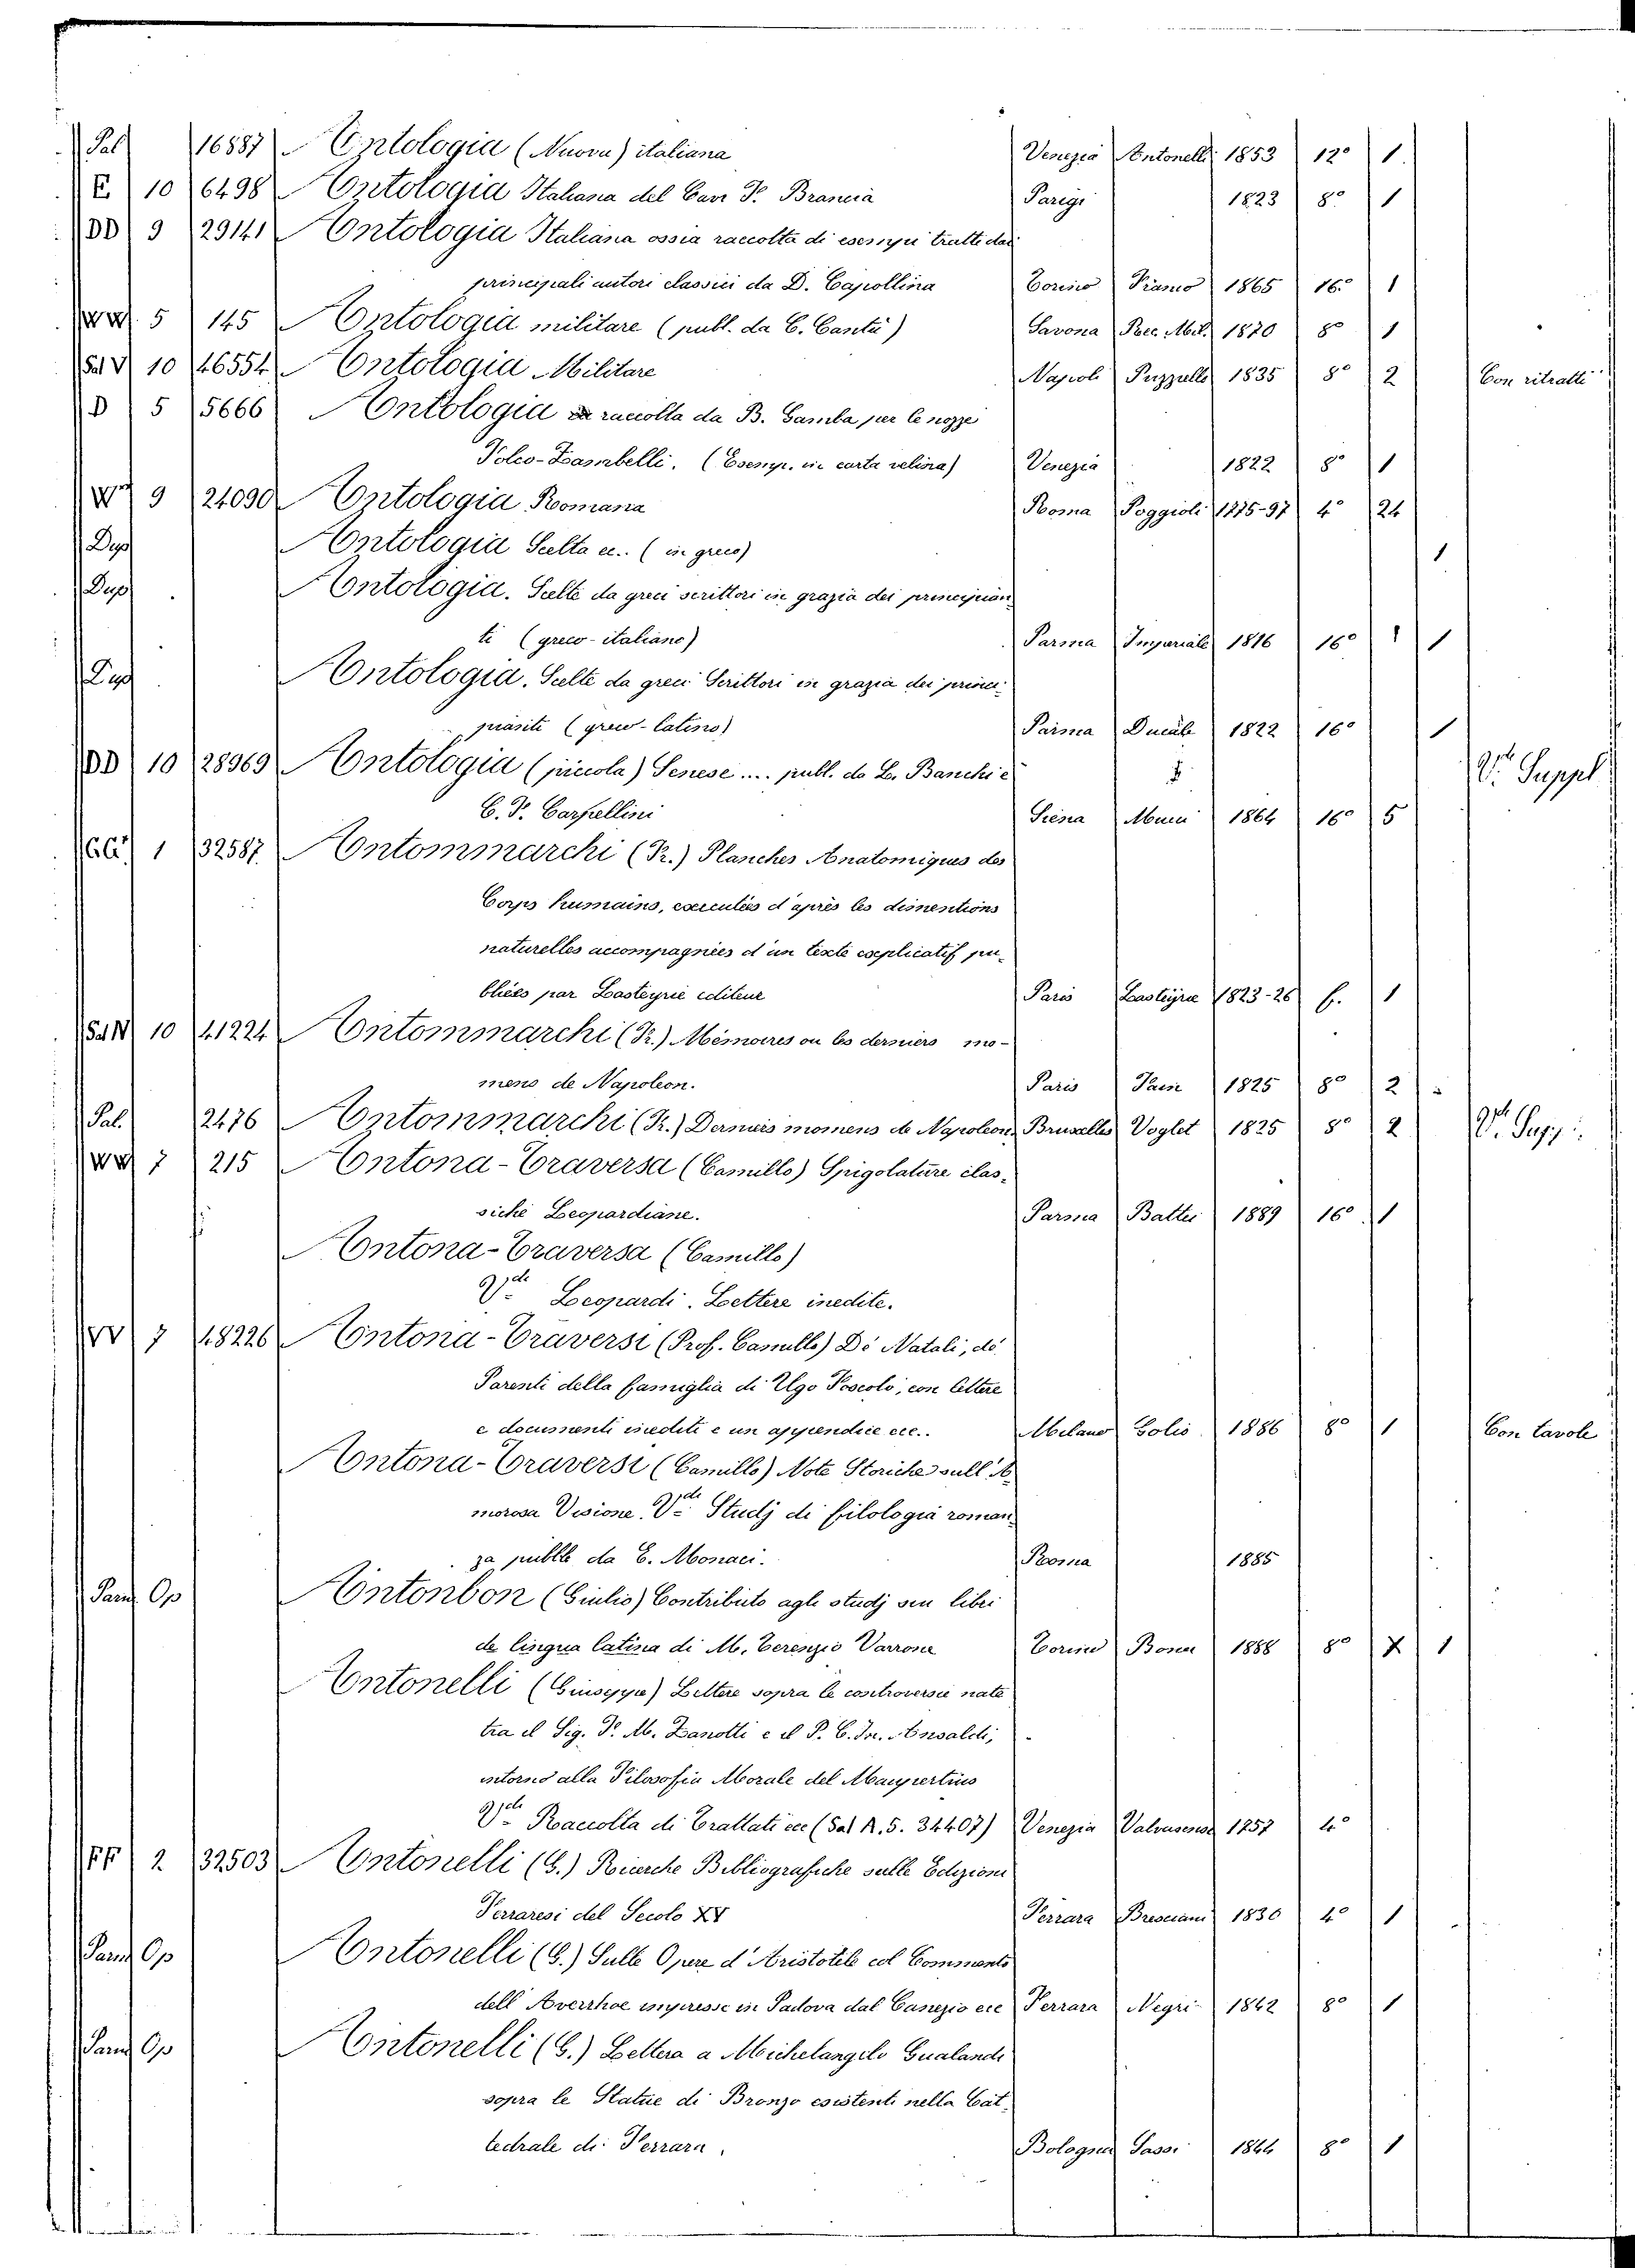 Pal 16887 Antologia (Nuova) italiana Venezia Antonelli 1853 12° 1.
E. 10 6498 Antologia Italiana del Cav F. Brancia Parigi 1823 8° 1
DD 9 29141 Antologia Italiana ossia raccolta di esempii tratti dai
principali autori classici da D. Capellina Torino Franco 1865 16° 1
5 145 Antologia militare (publ. da C. Cantù) Savona Rec. Mil. 1870 8° 1
Sal V 10 46554 Antologia Militare Napoli Puzziello 1835 8° 2 Con ritratti
D 5 5666 Antologia raccolta da B. Gamba per le nozze
Polco-Zambelli. (Esemp. in carta velina) Venezia 1822 8° 1
9 24090 Antologia Romana Roma Poggioli 1775-97 4° 24
Dep Antologia Scelta ec. (in greco) 1
Dep Antologia. Scelte da greci scrittori in grazia dei principian
ti (greco-italiano) Parma Imperiale 1816 16° 1 1
Dep Antologia. Scelte da greci Scrittori in grazia dei princi-
pianti (greco-latino) Parma Ducale 1822 16° 1
DD 10 28969 Antologia (piccola) Senese .... publ. da L. Banchi e Vde Suppl
C. F. Carpellini Siena Mucci 1864 16° 5
1 32587 Antommarchi (F.) Planches Anatomiques des
Corps humains, executées d'après les dimentions
naturelles accompagnées d'un texte explicatif pu-
bliées par Lasteyrie editeur Paris Lasteyrie 1823-26 f. 1
Sal N 10 41224 Antommarchi (F.) Mémoires ou les derniers mo-
mens de Napoleon. Paris Pain 1825 8° 2
Pal. 2476 Antommarchi (F.) Derniers momens de Napoleon. Bruxelles Voglet 1825 8° 2 Vde Supp.
7 215 Antona-Traversa (Camillo) Spigolature clas-
siche Leopardiane. Parma Battei 1889 16° 1
Antona-Traversa (Camillo)
Vde Leopardi. Lettere inedite.
VV 7 48226 Antona-Traversi (Prof. Camillo) De Natali, de
Parenti della famiglia di Ugo Foscolo, con lettere
e documenti inediti e un appendice ecc.. Milano Golio 1886 8° 1 Con tavole
Antona-Traversi (Camillo) Note Storiche sull'A
morosa Visione. Vde Studj di filologia roman
za publb da E. Monaci. Roma 1885
Parm Op Antonbon (Giulio) Contributo agli studj sui libri
de lingua latina di M. Terenzio Varrone Torino Bona 1888 8° 1
Antonelli (Giuseppe) Lettere sopra le controversie nate
tra il Sig. F. M. Zanotti e il P. C. In. Ansaldi,
intorno alla Filosofia Morale del Maupertius
Vde Raccolta di Trattati ecc (Sal R. 5. 34407) Venezia Valvasense 1757 4°
FF 2 32503 Antonelli (G.) Ricerche Bibliografiche sulle Edizioni
Ferraresi del Secolo XV Ferrara Bresciani 1830 4° 1
Parm Op Antonelli (G.) Sulle Opere d'Aristotele col Commento
dell Averrhoe impresse in Padova dal Canozio ecc Ferrara Negri 1842 8° 1
Parm Op Antonelli (G.) Lettera a Michelangelo Gualandi
sopra le Statue di Bronzo esistenti nella Cat-
tedrale di Ferrara. Bologna Sassi 1844 8° 1